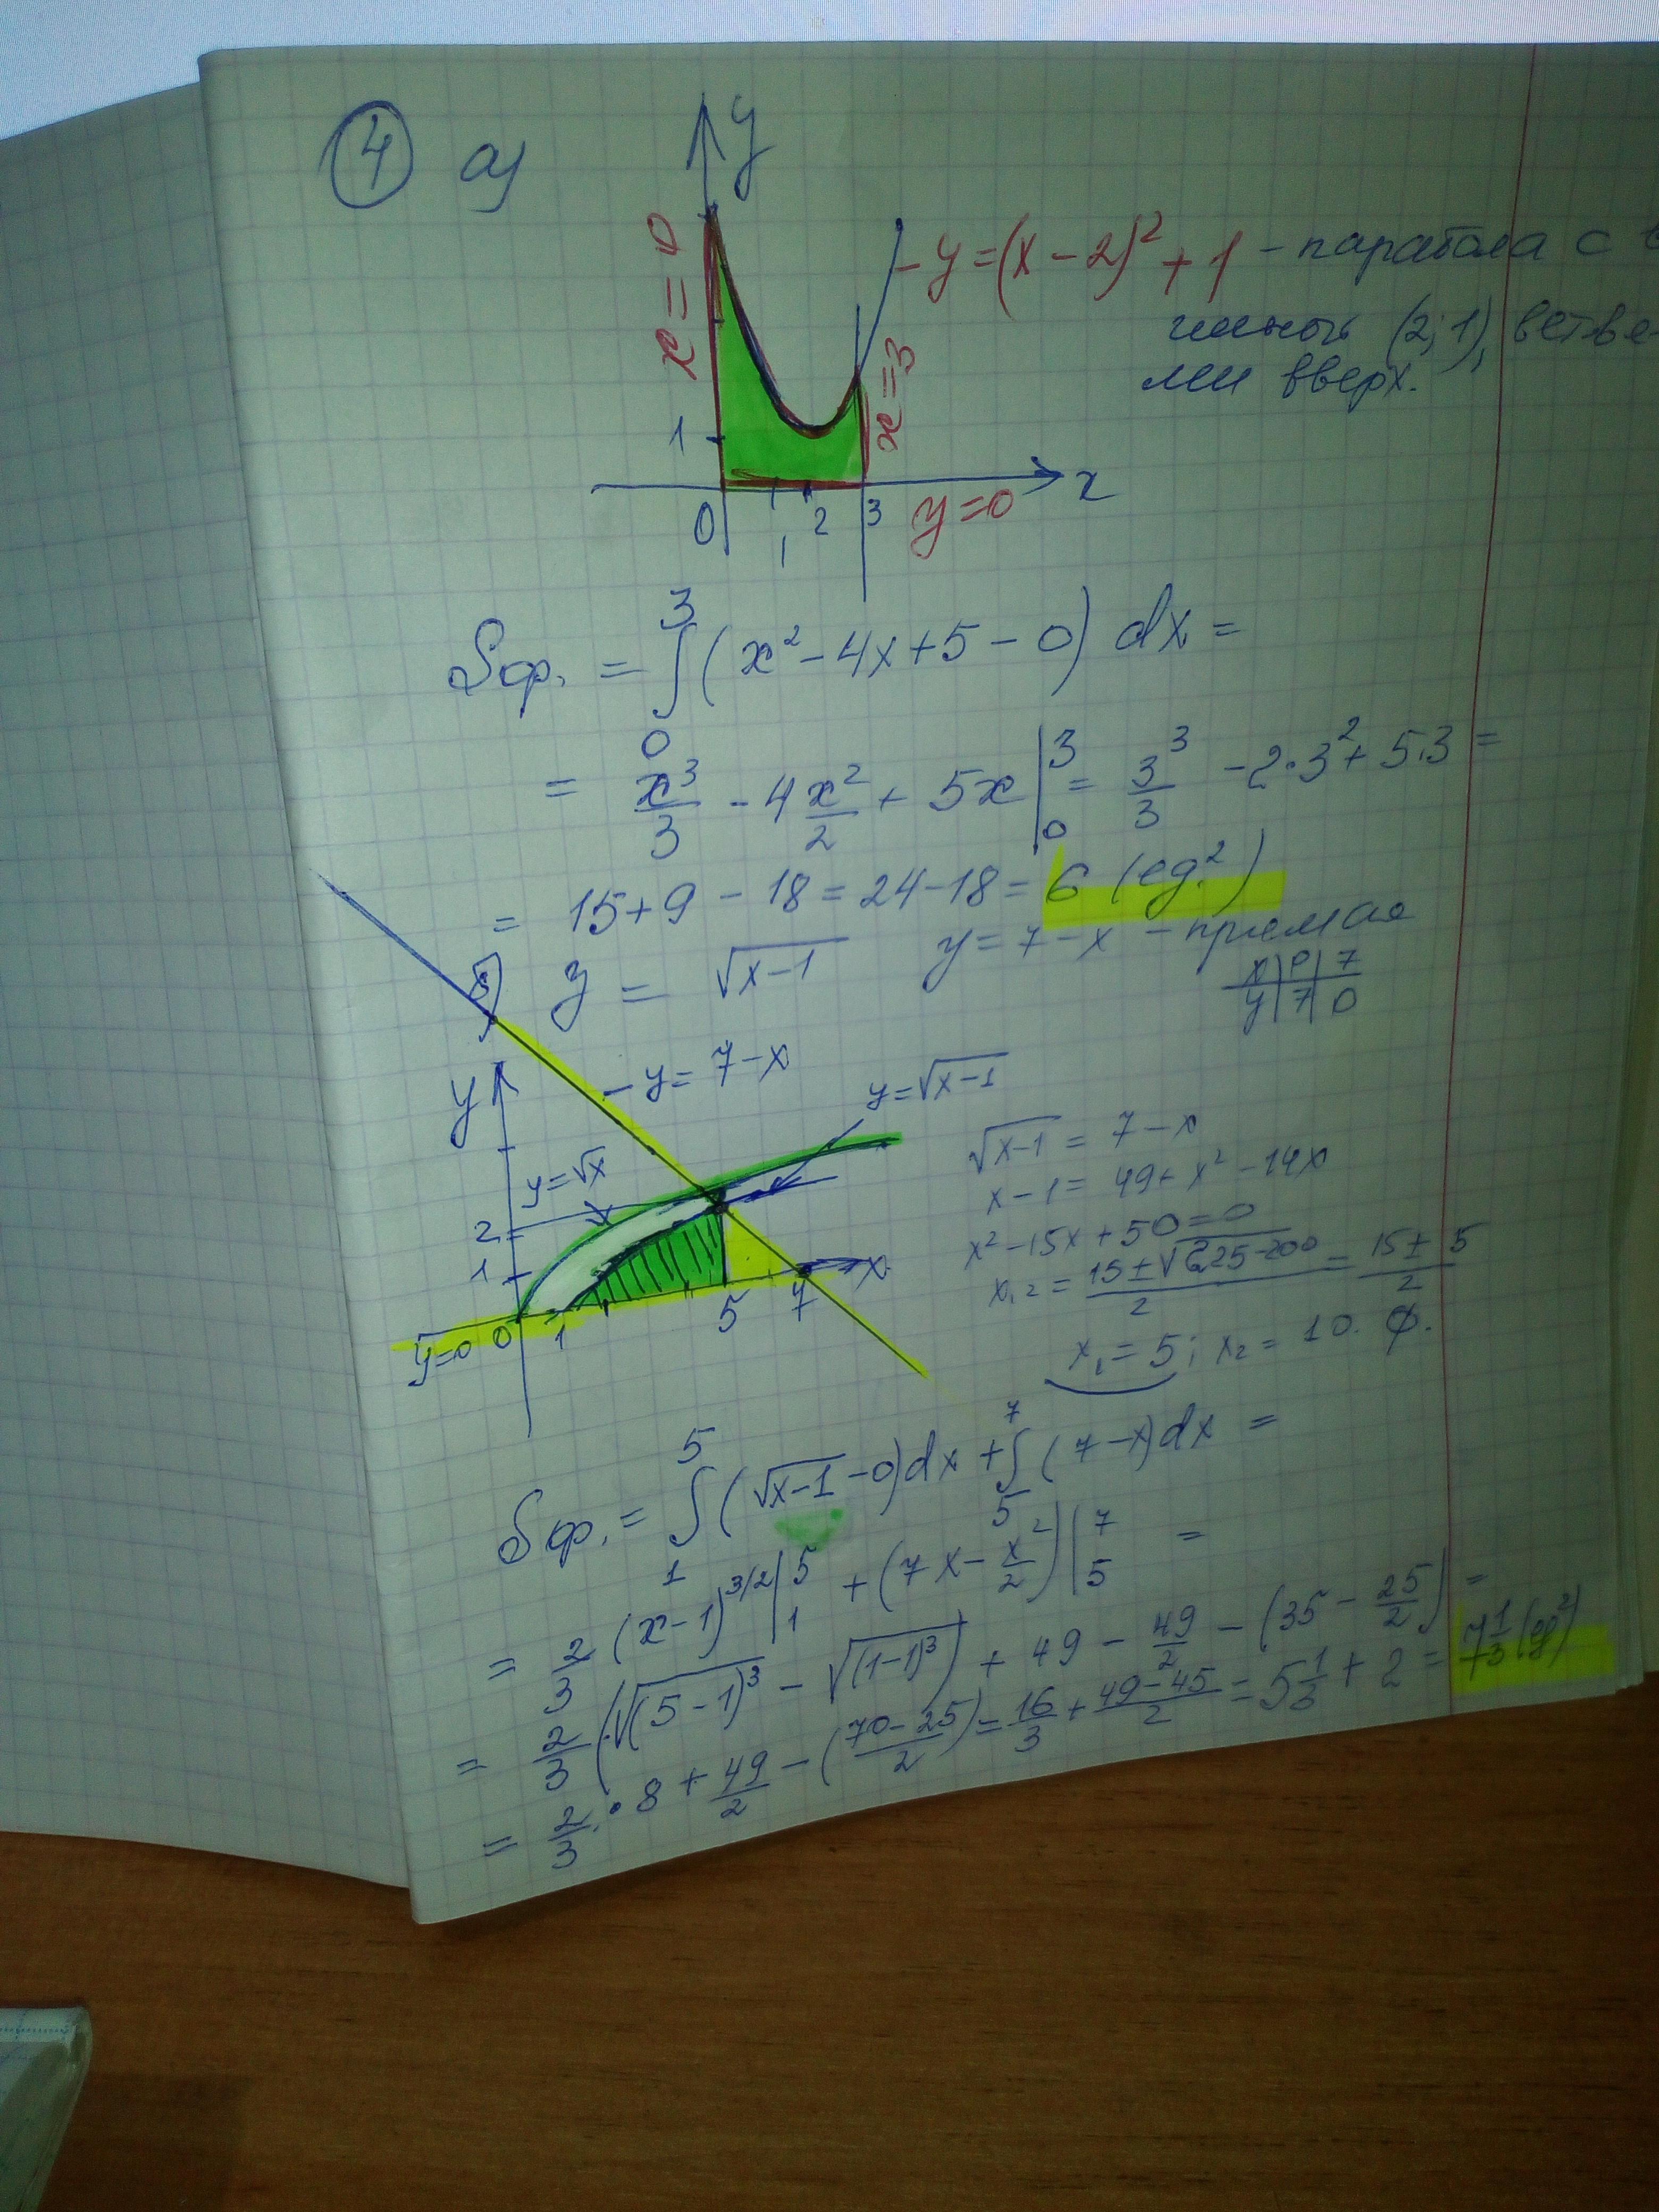 ④ а)
y
x = 0
y = (x – 2)² + 1 – парабола с
(2; 1), ветвя-
ми вверх.
1
x = 3
0 1 2 3 y = 0 x
Sф. = ∫₀³ (x² – 4x + 5 – 0) dx =
= x³/3 – 4x²/2 + 5x |₀³ = 3³/3 – 2·3² + 5·3 =
= 15 + 9 – 18 = 24 – 18 = 6 (ед.²)
б) y = √(x–1) y = 7 – x – прямая
x | 0 | 7
y | 7 | 0
– y = 7 – x
y
y = √(x–1)
y = √x
2
1
y = 0 0 1 5 7 x
√(x–1) = 7 – x
x – 1 = 49 + x² – 14x
x² – 15x + 50 = 0
x₁,₂ = (15 ± √(225–200))/2 = (15 ± 5)/2
x₁ = 5; x₂ = 10. ∅.
Sф. = ∫₁⁵ (√(x–1) – 0) dx + ∫₅⁷ (7 – x) dx =
= 2/3 (x – 1)^(3/2) |₁⁵ + (7x – x²/2) |₅⁷ =
= 2/3 (√((5 – 1)³) – √((1–1)³)) + 49 – 49/2 – (35 – 25/2) =
= 2/3 · 8 + 49/2 – ((70 – 25)/2) = 16/3 + (49 – 45)/2 = 5 1/3 + 2 = 7 1/3 (ед²)